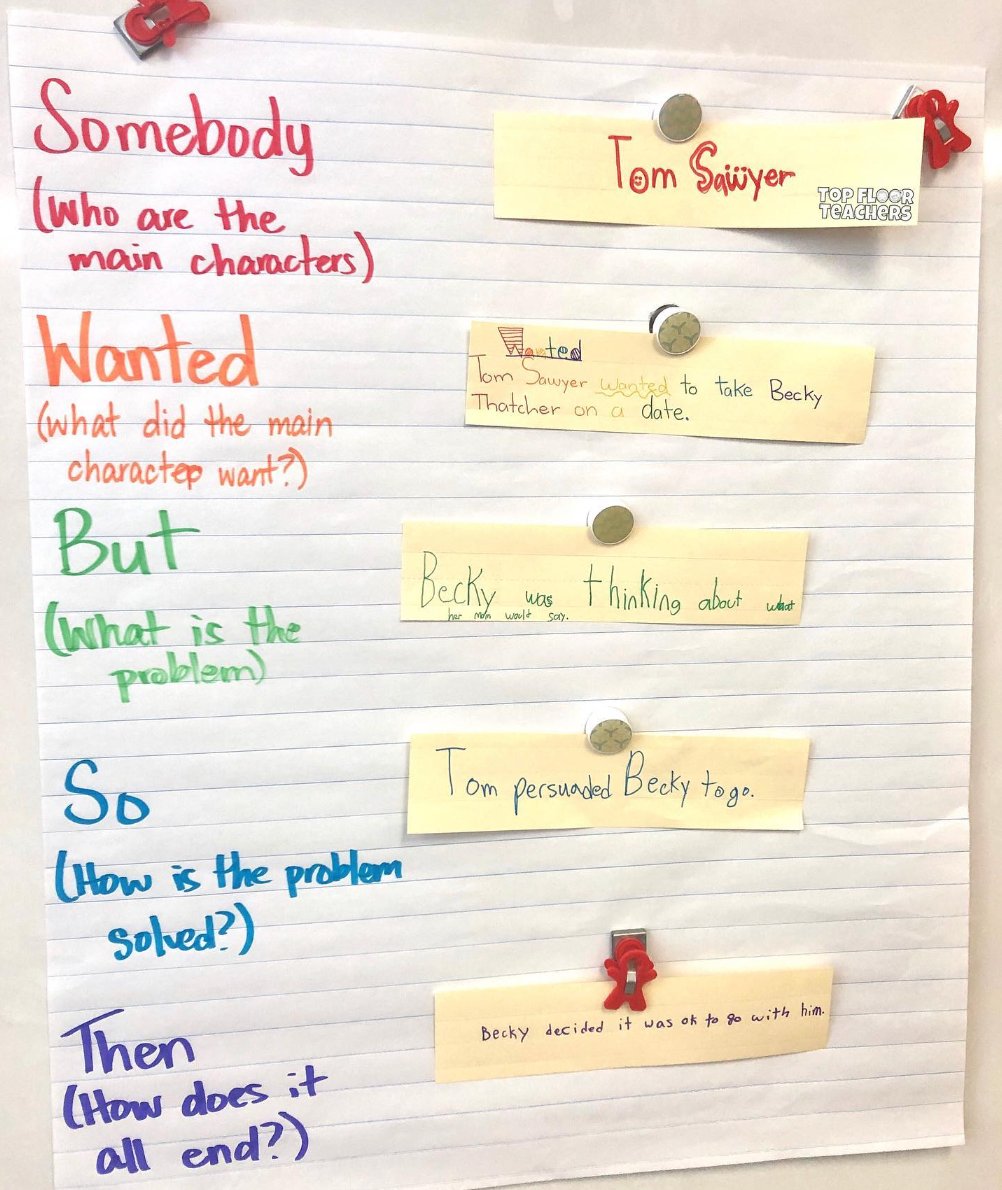 Somebody
(Who are the
main characters)
Tom Sawyer
TOP FLOOR
TEACHERS
Wanted
(what did the main
character want?)
Wanted
Tom Sawyer wanted to take Becky
Thatcher on a date.
But
(What is the
problem)
Becky was thinking about what
her mom would say.
So
(How is the problem
solved?)
Tom persuaded Becky to go.
Then
(How does it
all end?)
Becky decided it was ok to go with him.